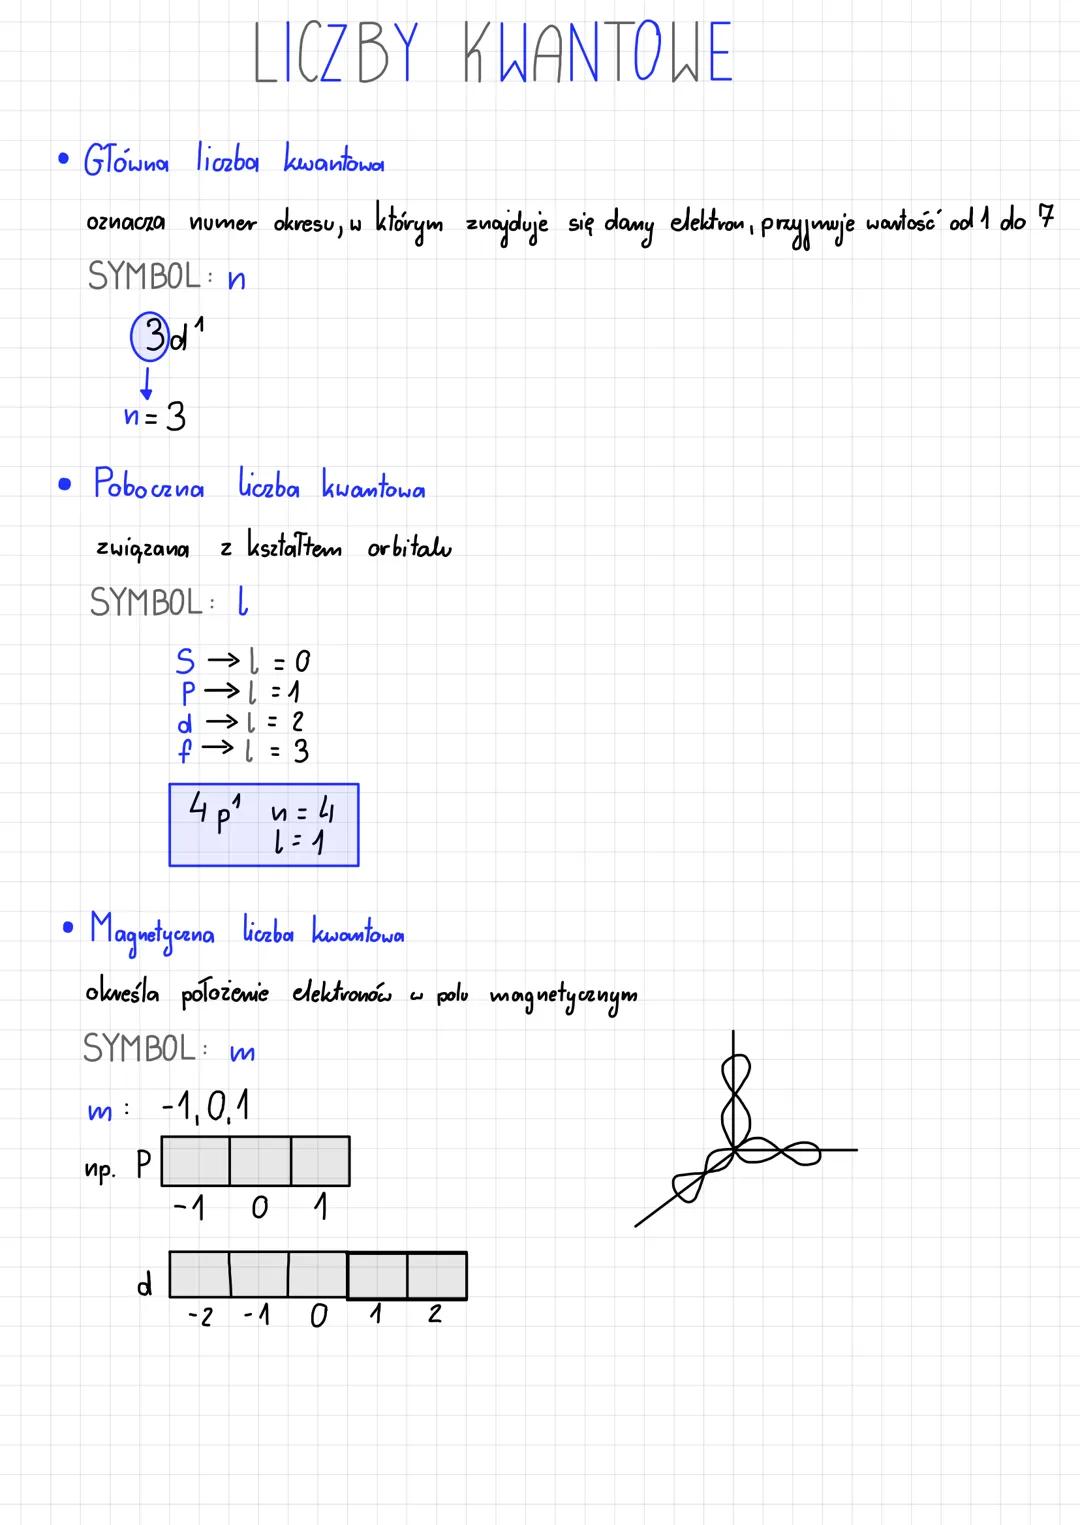 LICZBY KWANTOWE
• Główna liczba kwantowa
oznacza numer okresu, w którym znajduje się dany elektron, przyjmuje wartość od 1 do 7
SYMBOL: n
3d¹
n = 3
• Poboczna liczba kwantowa
związana z kształtem orbitalu
SYMBOL: l
S → l = 0
P → l = 1
d → l = 2
f → l = 3
4p¹ n = 4
l = 1
• Magnetyczna liczba kwantowa
określa położenie elektronów w polu magnetycznym
SYMBOL: m
m: -1, 0, 1
np. P
-1 0 1
d
-2 -1 0 1 2